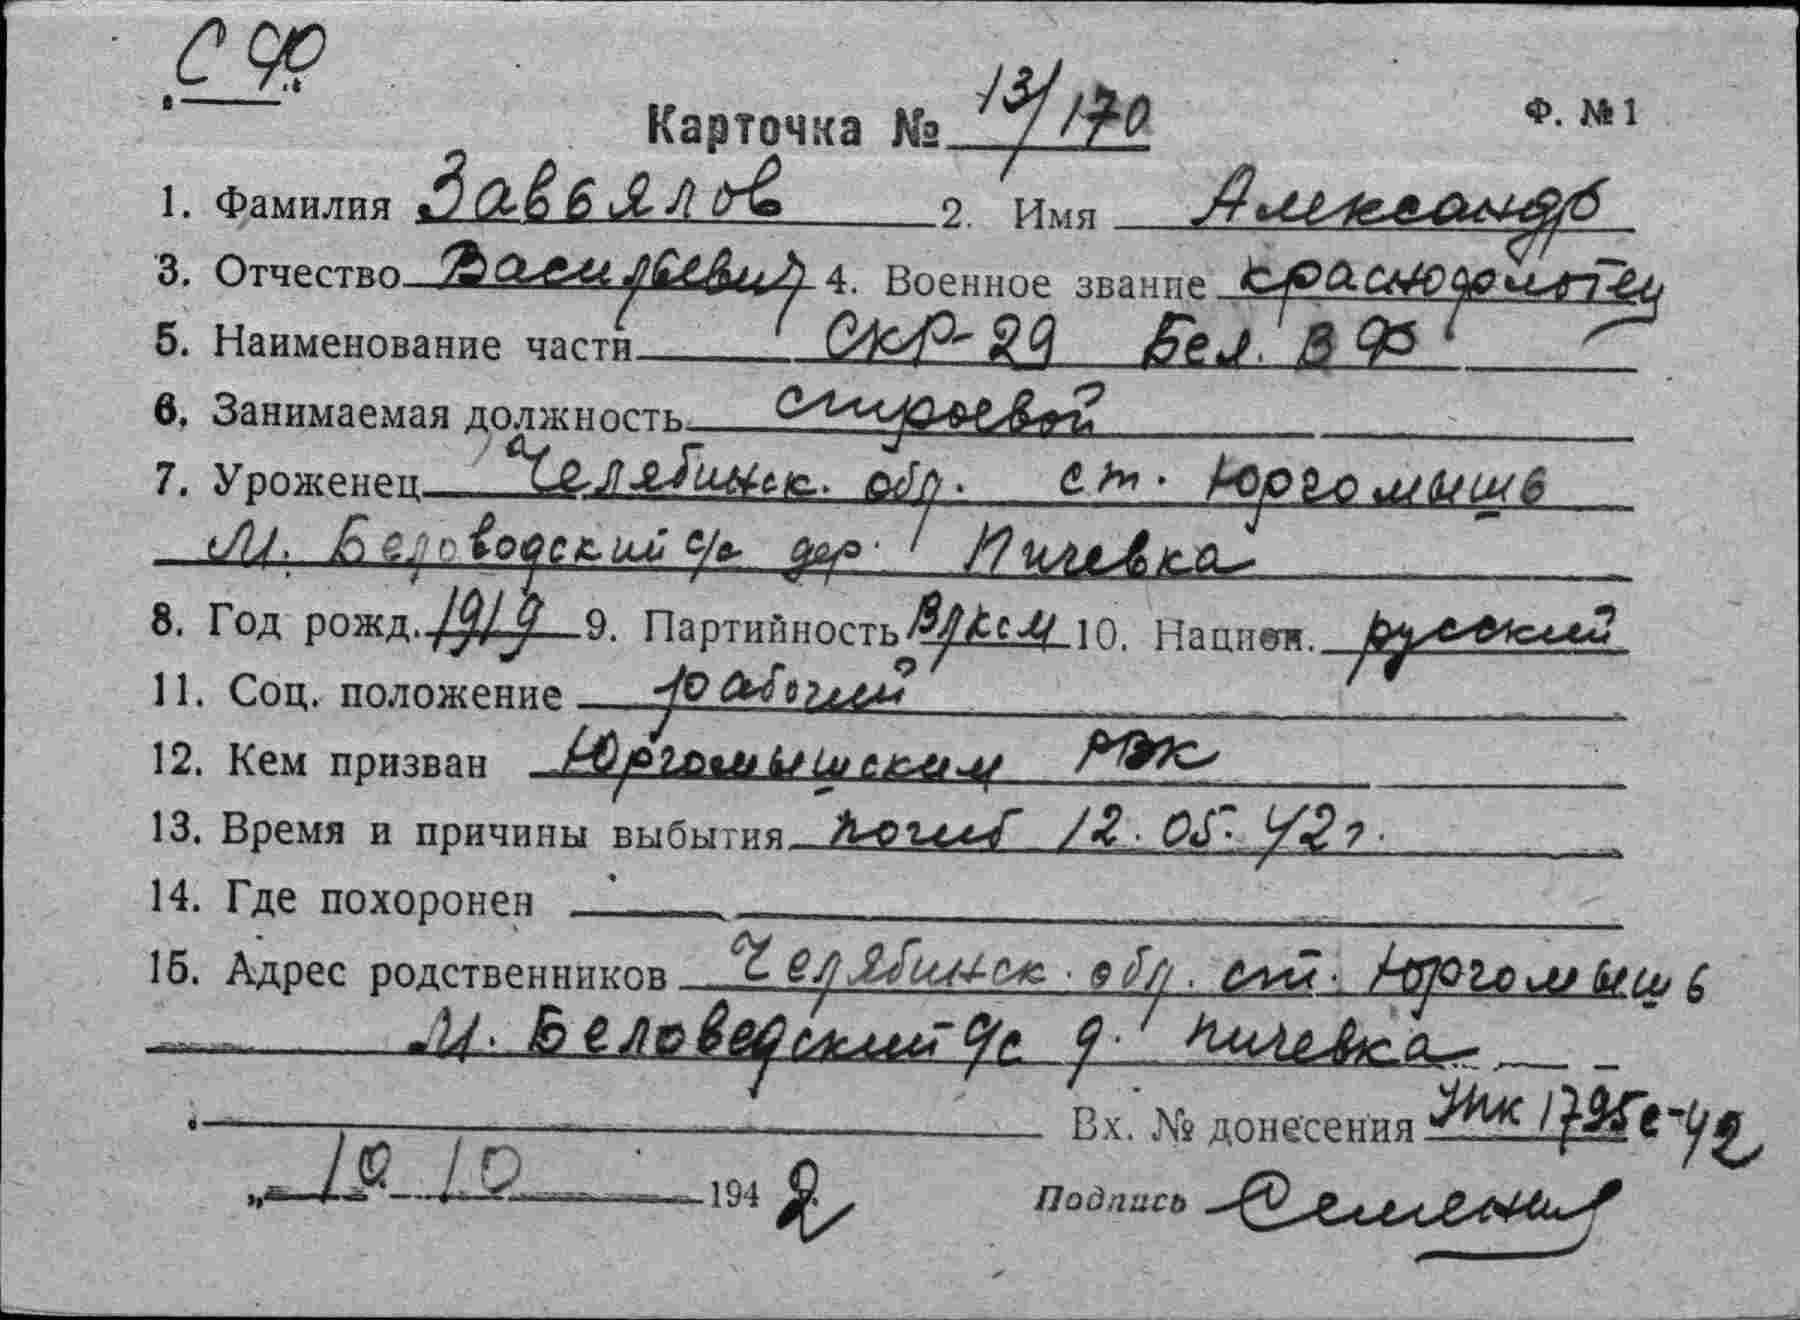 СФ
Карточка № 13/170
Ф. № 1
1. Фамилия Завьялов 2. Имя Александр
3. Отчество Васильевич 4. Военное звание краснофлотец
5. Наименование части СКР-29 Бел. В Ф
6. Занимаемая должность строевой
7. Уроженец Челябинск. обл. ст. Юргомышь
М. Беловодский с/с дер. Пичевка
8. Год рожд. 1919 9. Партийность ВЛКСМ 10. Национ. русский
11. Соц. положение рабочий
12. Кем призван Юргомышским РВК
13. Время и причины выбытия погиб 12.05.42г.
14. Где похоронен
15. Адрес родственников Челябинск. обл. ст. Юргомышь
М. Беловедский с/с д. Пичевка
Вх. № донесения 1795с-42
„ 10 10 1942
Подпись